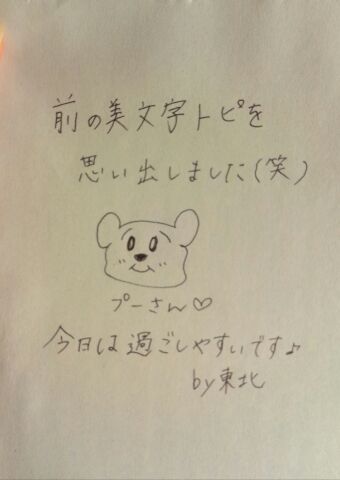 前の美文字トピを
思い出しました(笑)
プーさん♡
今日は過ごしやすいです♪
by東北